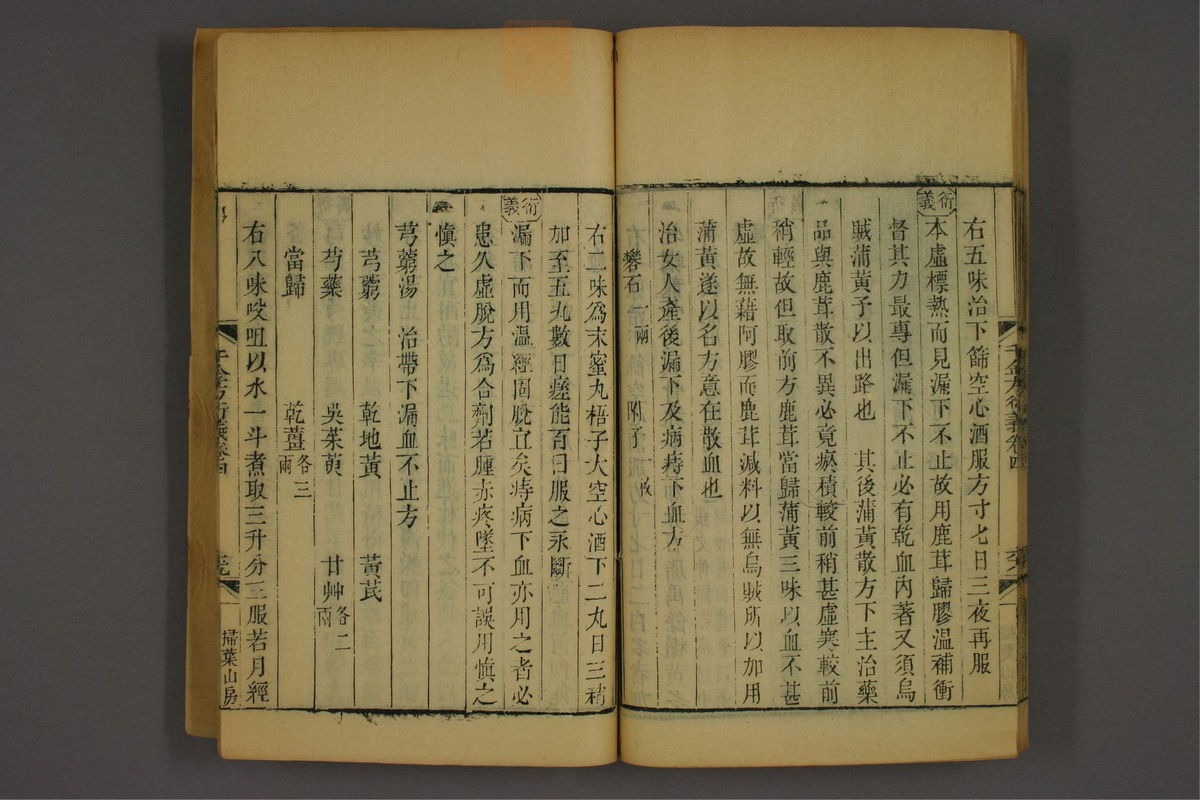 右五味治下篩空心酒服方寸匕日三夜再服
衍義
本虛標熱而見漏下不止故用鹿茸歸膠溫補衝
督其力最專但漏下不止必有乾血內著又須烏
賊蒲黃予以出路也　其後蒲黃散方下主治藥
品與鹿茸散不異必竟瘀積較前稍甚虛寒較前
稍輕故但取前方鹿茸當歸蒲黃三味以血不甚
虛故無藉阿膠而鹿茸減料以無烏賊所以加用
蒲黃遂以名方意在散血也
治女人產後漏下及病痔下血方
礬石一兩　附子一枚
右二味為末蜜丸梧子大空心酒下二丸日三稍
加至五丸數日瘥能百日服之永斷
衍義
漏下而用溫經固脫宜矣痔病下血亦用之者必
患久虛脫方為合劑若腫赤疼墜不可誤用慎之
慎之
芎藭湯　治帶下漏血不止方
芎藭　乾地黃　黃芪
芍藥　吳茱萸　甘艸各二兩
當歸　乾薑各三兩
右八味㕮咀以水一斗煮取三升分三服若月經
千金方衍義卷四
掃葉山房